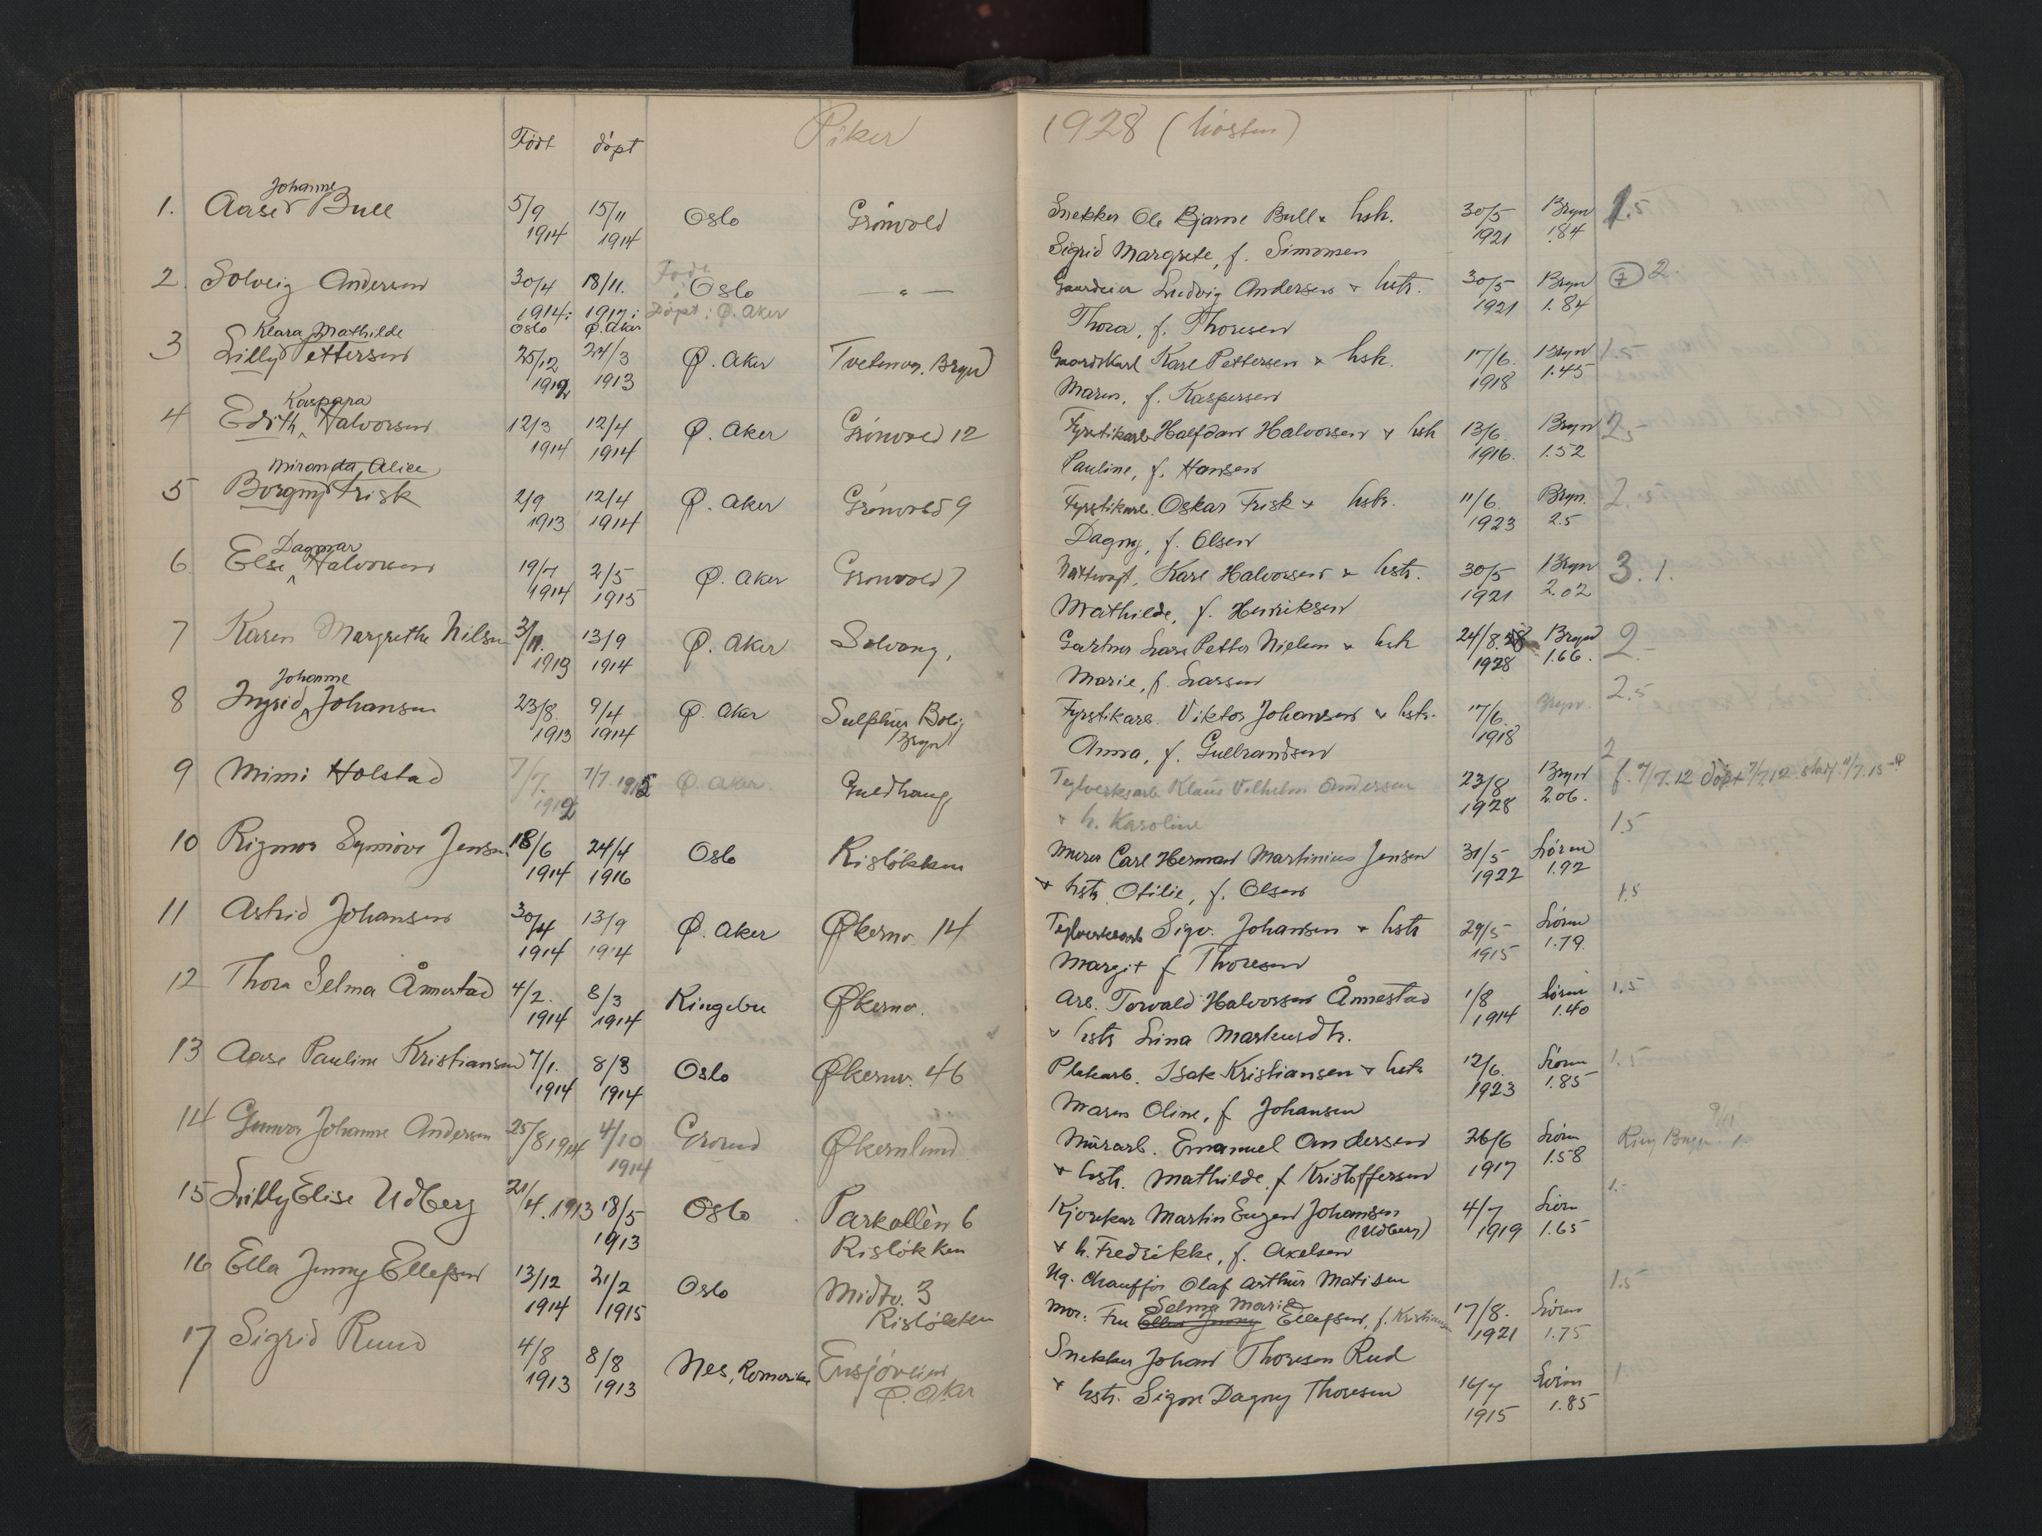 Piker 1928 (høsten)
Født døpt
Johanne
1. Aase Bull 5/9 1914 15/11 1914 Oslo Grønvold Snekker Ole Bjarne Bull & hstr. 30/5 1921 Bryn 1.84 1.5
Sigrid Margrete, f. Simonsen
2. Solveig Andersen 30/4 1914: Oslo 18/11. 1917: Ø. Aker Født: Oslo Døpt: Ø. Aker — " — Ludvig Andersen & hstr. 30/5 1921 Bryn 1.84 2.
Thora, f. Thoresen
Klara Mathilde
3 Lilly Pettersen 25/12 1912 24/3 1913 Ø. Aker Tvetenv. Bryn Gaardskarl Karl Pettersen & hstr. 17/6. 1918 Bryn 1.45 1.5
Maren, f. Kaspersen
Kaspara
4 Edith Halvorsen 12/3 1914 12/4 1914 Ø. Aker Grønvold 12 Fyrstikarb. Halfdan Halvorsen & hstr 13/6. 1916. Bryn 1.52 2.5
Pauline, f. Hansen
Miranda Alice
5 Borgny Frisk 2/9 1913 12/4 1914 Ø. Aker Grønvold 9 Fyrstikarb. Oskar Frisk & hstr. 11/6. 1923 Bryn. 2.5 2.5
Dagny, f. Olsen
Dagmar
6. Else Halvorsen 19/7 1914 2/5 1915 Ø. Aker Grønvold 7 Nattvagt, Karl Halvorsen & hstr. 30/5 1921 Bryn 2.02 3.1.
Mathilde, f. Henriksen
7 Karen Margrethe Nilsen 3/11. 1913 13/9 1914 Ø. Aker Solvang, Gartner Lars Petter Nielsen & hstr 24/8. 1928 Bryn 1.66. 2.-
Marie, f. Larsen
Johanne
8 Ingrid Johansen 23/8. 1913 9/4 1914 Ø. Aker Sulphur Bolig Bryn Fyrstikarb. Viktor Johansen & hstr. 17/6. 1918 Bryn. 2.5
Anna, f. Gulbrandsen
9 Mimi Holstad 7/7. 1912 7/7. 1912 Ø. Aker. Guldhaug Teglverksarb Klaus Vilhelm Andersen 23/8 1928 Bryn 2.06. 2 f. 7/7.12 døpt 7/7.12
& h. Karoline
10 Rigmor Synnøve Jensen. 18/6 1914 24/4 1916 Oslo Risløkken Murer Carl Herman Martinius Jensen 31/5 1922 Løren 1.92 1.5
& hstr. Otilie, f. Olsen
11 Astrid Johansen 30/4 1914 13/9 1914 Ø. Aker Økernv. 14 Teglverksarb Sigv. Johansen & hstr 29/5 1915 Løren 1.79. 1.5
Margit f Thoresen
12 Thora Selma Ånnestad 4/2. 1914 8/3 1914 Ringebu Økernv. Arb. Torvald Halvorsen Ånnestad 1/8 1914 Løren 1.40 1.5
& hstr Lina Markusdtr.
13 Aase Pauline Kristiansen 7/1. 1914 8/3 1914 Oslo Økernv. 46 Isak Kristiansen & hstr 12/6. 1923 Løren 1.85 1.5
Maren Oline, f Johansen
14 Gunvor Johanne Andersen 25/8 1914 4/10 1914 Grorud Økernlund Murarb. Emanuel Andersen 26/6 1917 Løren 1.58 Ring Bryn 9/11
& hstr. Mathilde, f Kristoffersen
15 Lilly Elise Udberg 21/4. 1913 18/5 1913 Oslo Parkallèn 6 Risløkken Kjørekar Martin Eugen Johansen (Udberg) 4/7 1919 Løren 1.65 1.-
& h. Fredrikke, f. Axelsen
16 Ella Jenny Ellefsen 13/12 1914 21/2 1915 Oslo Midtv. 3 Risløkken Ug. Chauffør Olaf Arthur Matisen 1.5
Selma Marie
Mor: Fru Ella Jenny Ellefsen, f. Kristiansen 17/8. 1921 Løren 1.75
17 Sigrid Ruud 4/8 1913 8/8 1913 Nes, Romerike Ensjøveien Ø. Aker Snekker Johan Thoresen Rud 16/7 1915 Løren 1.85 1.
& hstr. Signe Dagny Thoresen